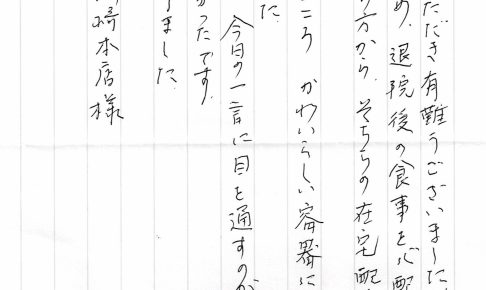 ただき有難うございました。
め、退院後の食事を心配
方から、そちらの在宅配
ころ かわいらしい容器に
た。
今日の一言に目を通すのが
かったです。
ました。
崎本店様